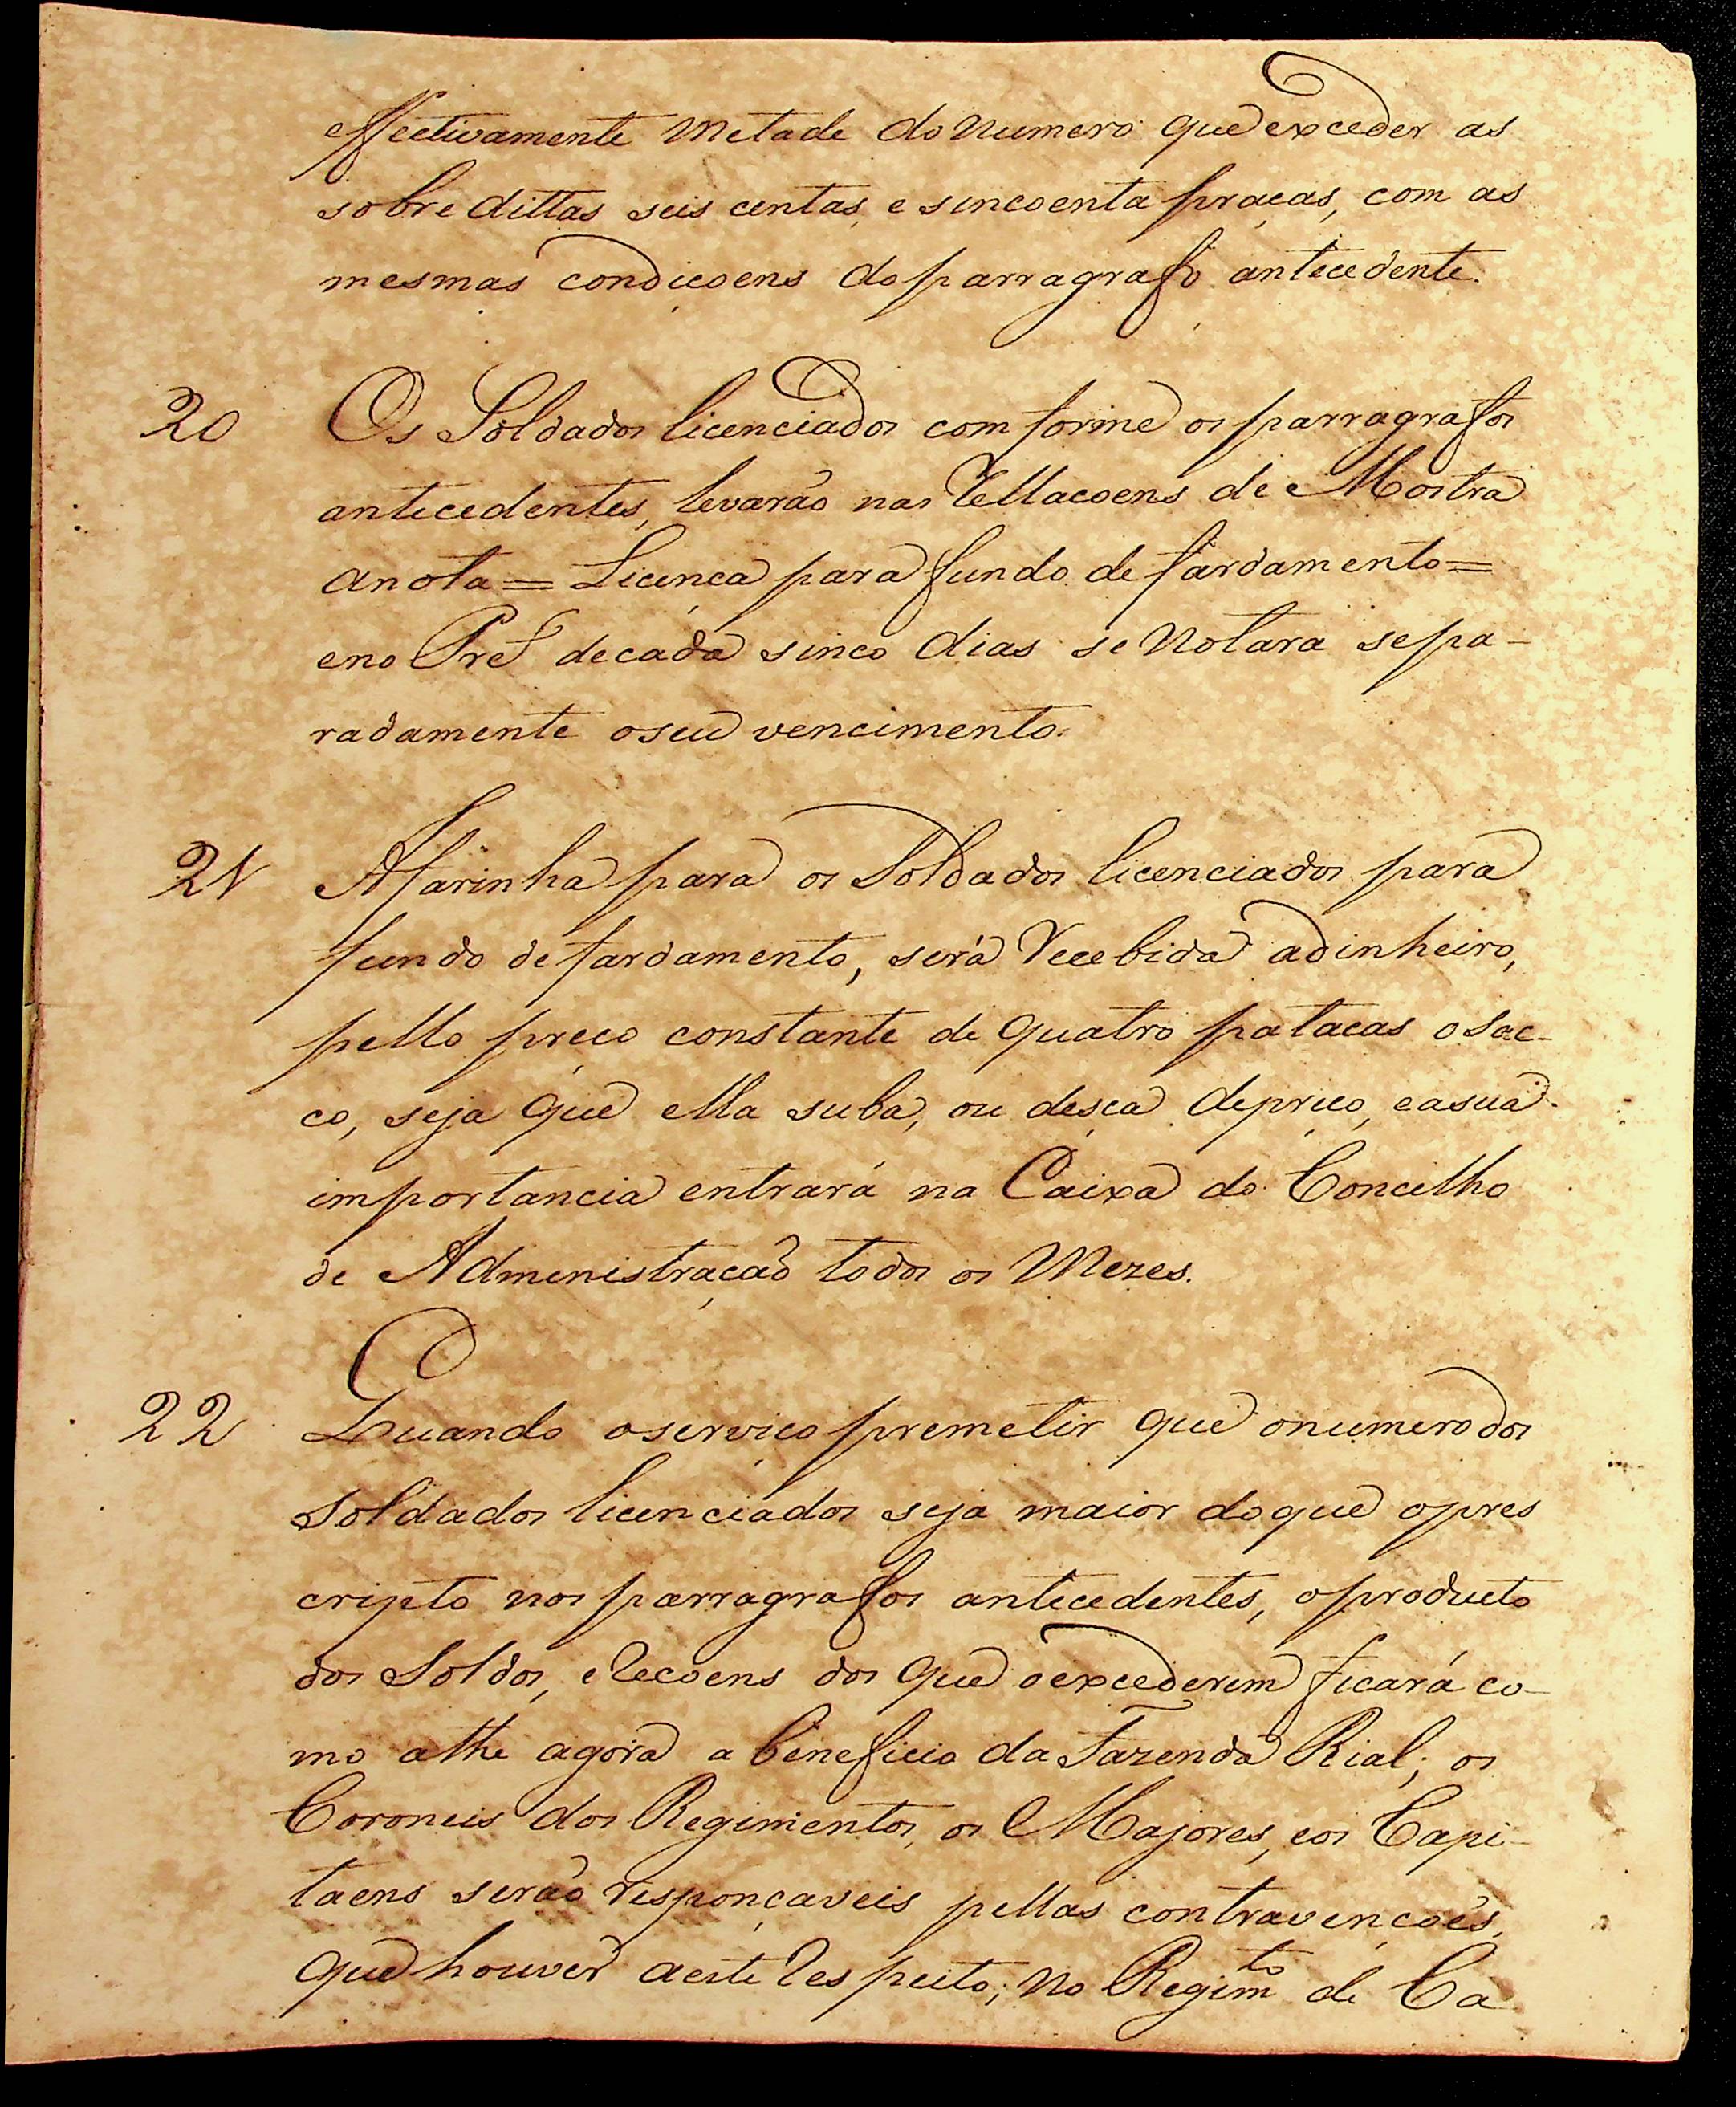 effectivamente metade do numero que exceder as
sobre dittas seis centas, e sincoenta praças, com as
mesmas condiçoens do parragrafo antecedente.
20 Os Soldados licenciados com forme os parragrafos
antecedentes, levarão nas Rellaçoens de Mostra
anota = Licença para fundo de fardamento =
eno Pret decáda sinco dias se notara sepa-
radamente oseu vencimento.
21 Afarinha para os Soldados licenciados para
fundo de fardamento, será Recebida adinheiro,
pello preço constante de quatro patacas osac-
co, seja que ella suba, ou desça depreço, easua
importancia entrará na Caixa do Concelho
de Administração todos os Mezes.
22 Quando oserviço premetir que onumero dos
Soldados licenciados seja maior doque opres
cripto nos parragrafos antecedentes, oproducto
dos Soldos, eReçoens dos que oexcederem ficará co-
mo athe agora a beneficio da Fazenda Rial; os
Coroneis dos Regimentos, os Majores, eos Capi-
taens serão responçaveis pellas contravençoẽs,
que houver aeste Respeito; no Regim.to de Ca